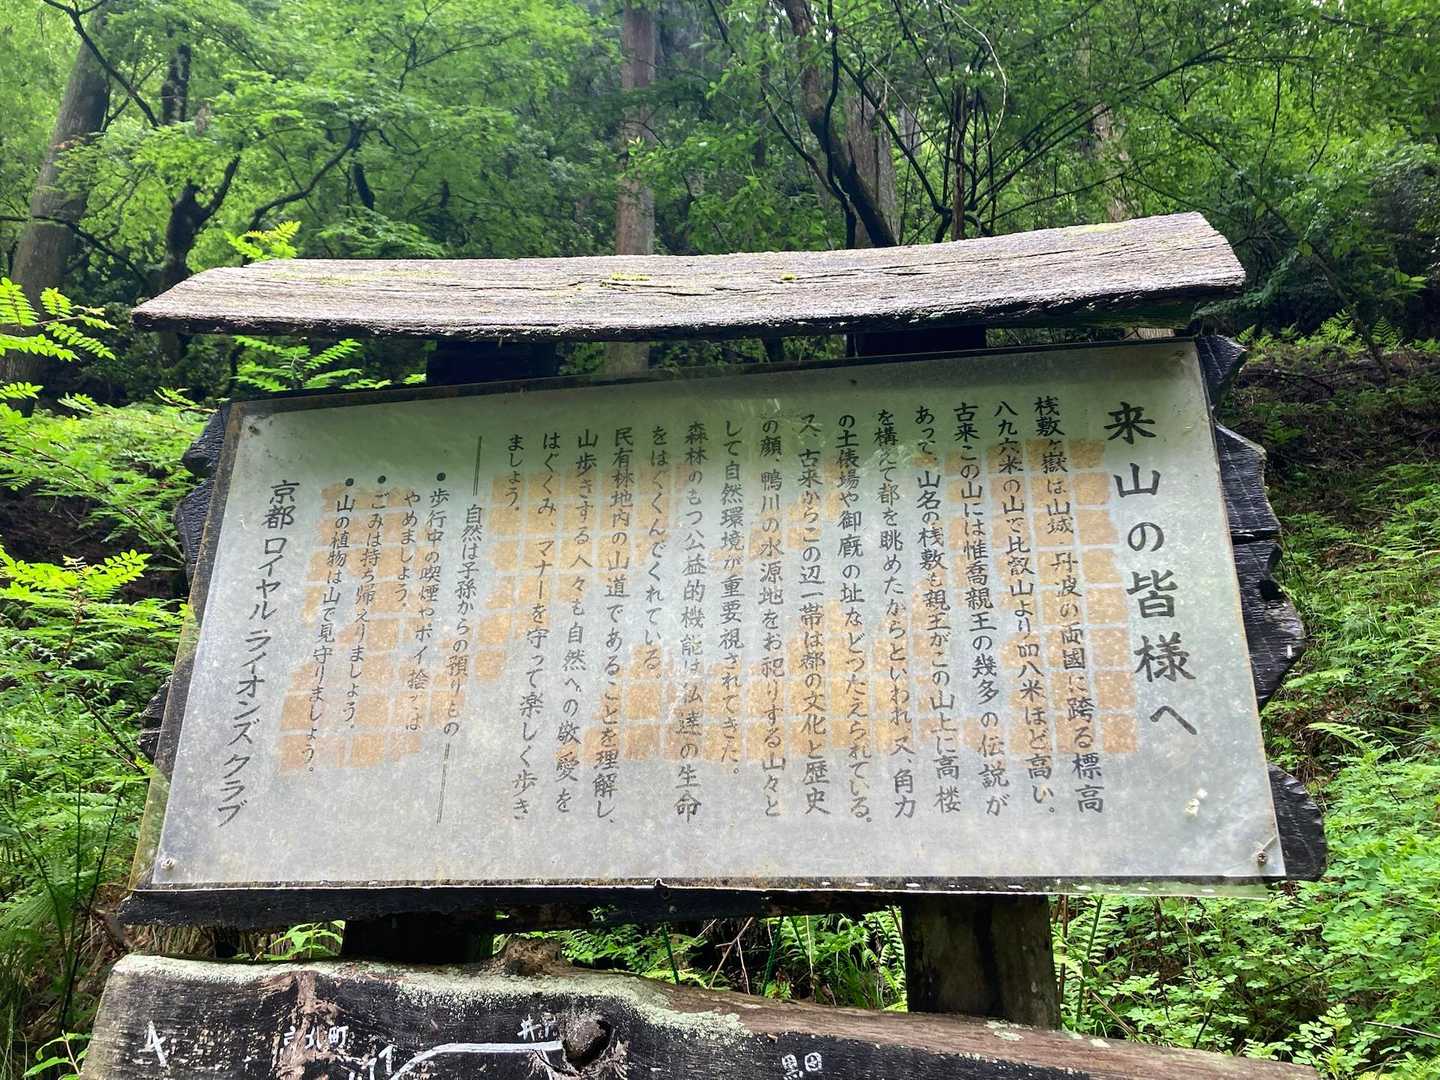 来山の皆様へ
桟敷ヶ嶽は、山城、丹波の両國に跨る標高
八九六米の山で比叡山より四八米ほど高い。
古来この山には惟喬親王の幾多の伝説が
あって、山名の桟敷も親王がこの山上に高楼
を構えて都を眺めたからといわれ又、角力
の土俵場や御廐の址などつたえられている。
又、古来からこの辺一帯は都の文化と歴史
の顔、鴨川の水源地をお祀りする山々と
して自然環境が重要視されてきた。
森林のもつ公益的機能は私達の生命
をはぐくんでくれている。
民有林地内の山道であることを理解し、
山歩きする人々も自然への敬愛を
はぐくみ、マナーを守って楽しく歩き
ましょう。
自然は子孫からの預りもの
●歩行中の喫煙やポイ捨ては
やめましょう。
●ごみは持ち帰えりましょう。
●山の植物は山で見守りましょう。
京都ロイヤルライオンズクラブ
黒田